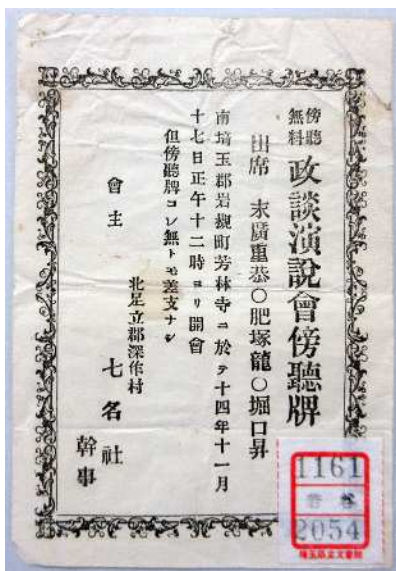 傍聽無料 政談演說會傍聽牌
出席 末廣重恭○肥塚龍○堀口昇
南埼玉郡岩槻町芳林寺ニ於テ十四年十一月
十七日正午十二時ヨリ開會
但傍聽牌コレ無トモ差支ナシ
北足立郡深作村
會主 七名社
幹事
1161
2054
埼玉県立文書館